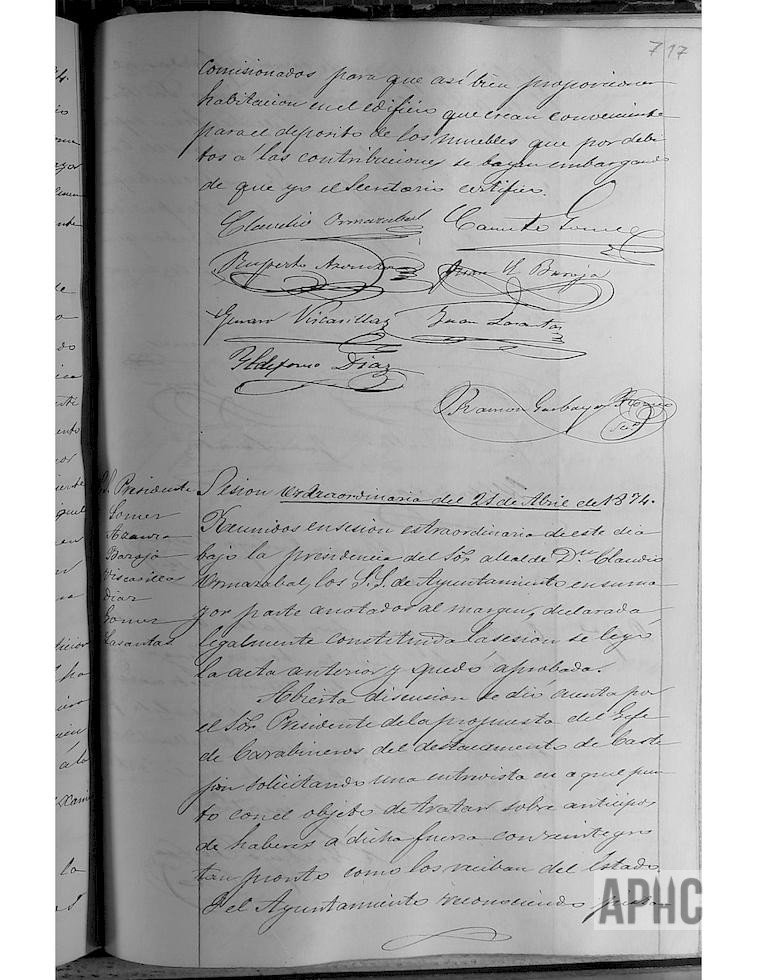 717
comisionados para que asi bien proporcionen
habitacion en el edificio que crean conveniente
para el deposito de los muebles que por debi
tos á las contribuciones se bayan embargando
de que yo el Secretario certifico.
Claudio Ormazabal
Gomez
Ruperto
Juan U. Baroja
Genaro Viscasillas
Juan Lasantas
Yldefonso Diaz
Ramon Garbayo
Srio
S.S. Presidente
Gomez
Azcona
Baroja
Viscasillas
Diaz
Gomez
Lasantas
Sesion extraordinaria del 21 de Abril de 1874.
Reunidos en sesion estraordinaria de este dia
bajo la presidencia del Sor. alcalde Dn. Claudio
Ormazabal, los S.S. de Ayuntamiento en su ma
yor parte anotados al margen, declarada
legalmente constituida la sesion se leyo
la acta anterior y quedo aprobada.
Abierta discusion se dio cuenta por
el Sor. Presidente de la propuesta del Gefe
de Carabineros del destacamento de Caste
jon solicitando una entrevista en aquel pun
to con el objeto de tratar sobre anticipos
de haberes á dicha fuerza con reintegro
tan pronto como los reciban del Estado.
Y el Ayuntamiento reconociendo
APHC